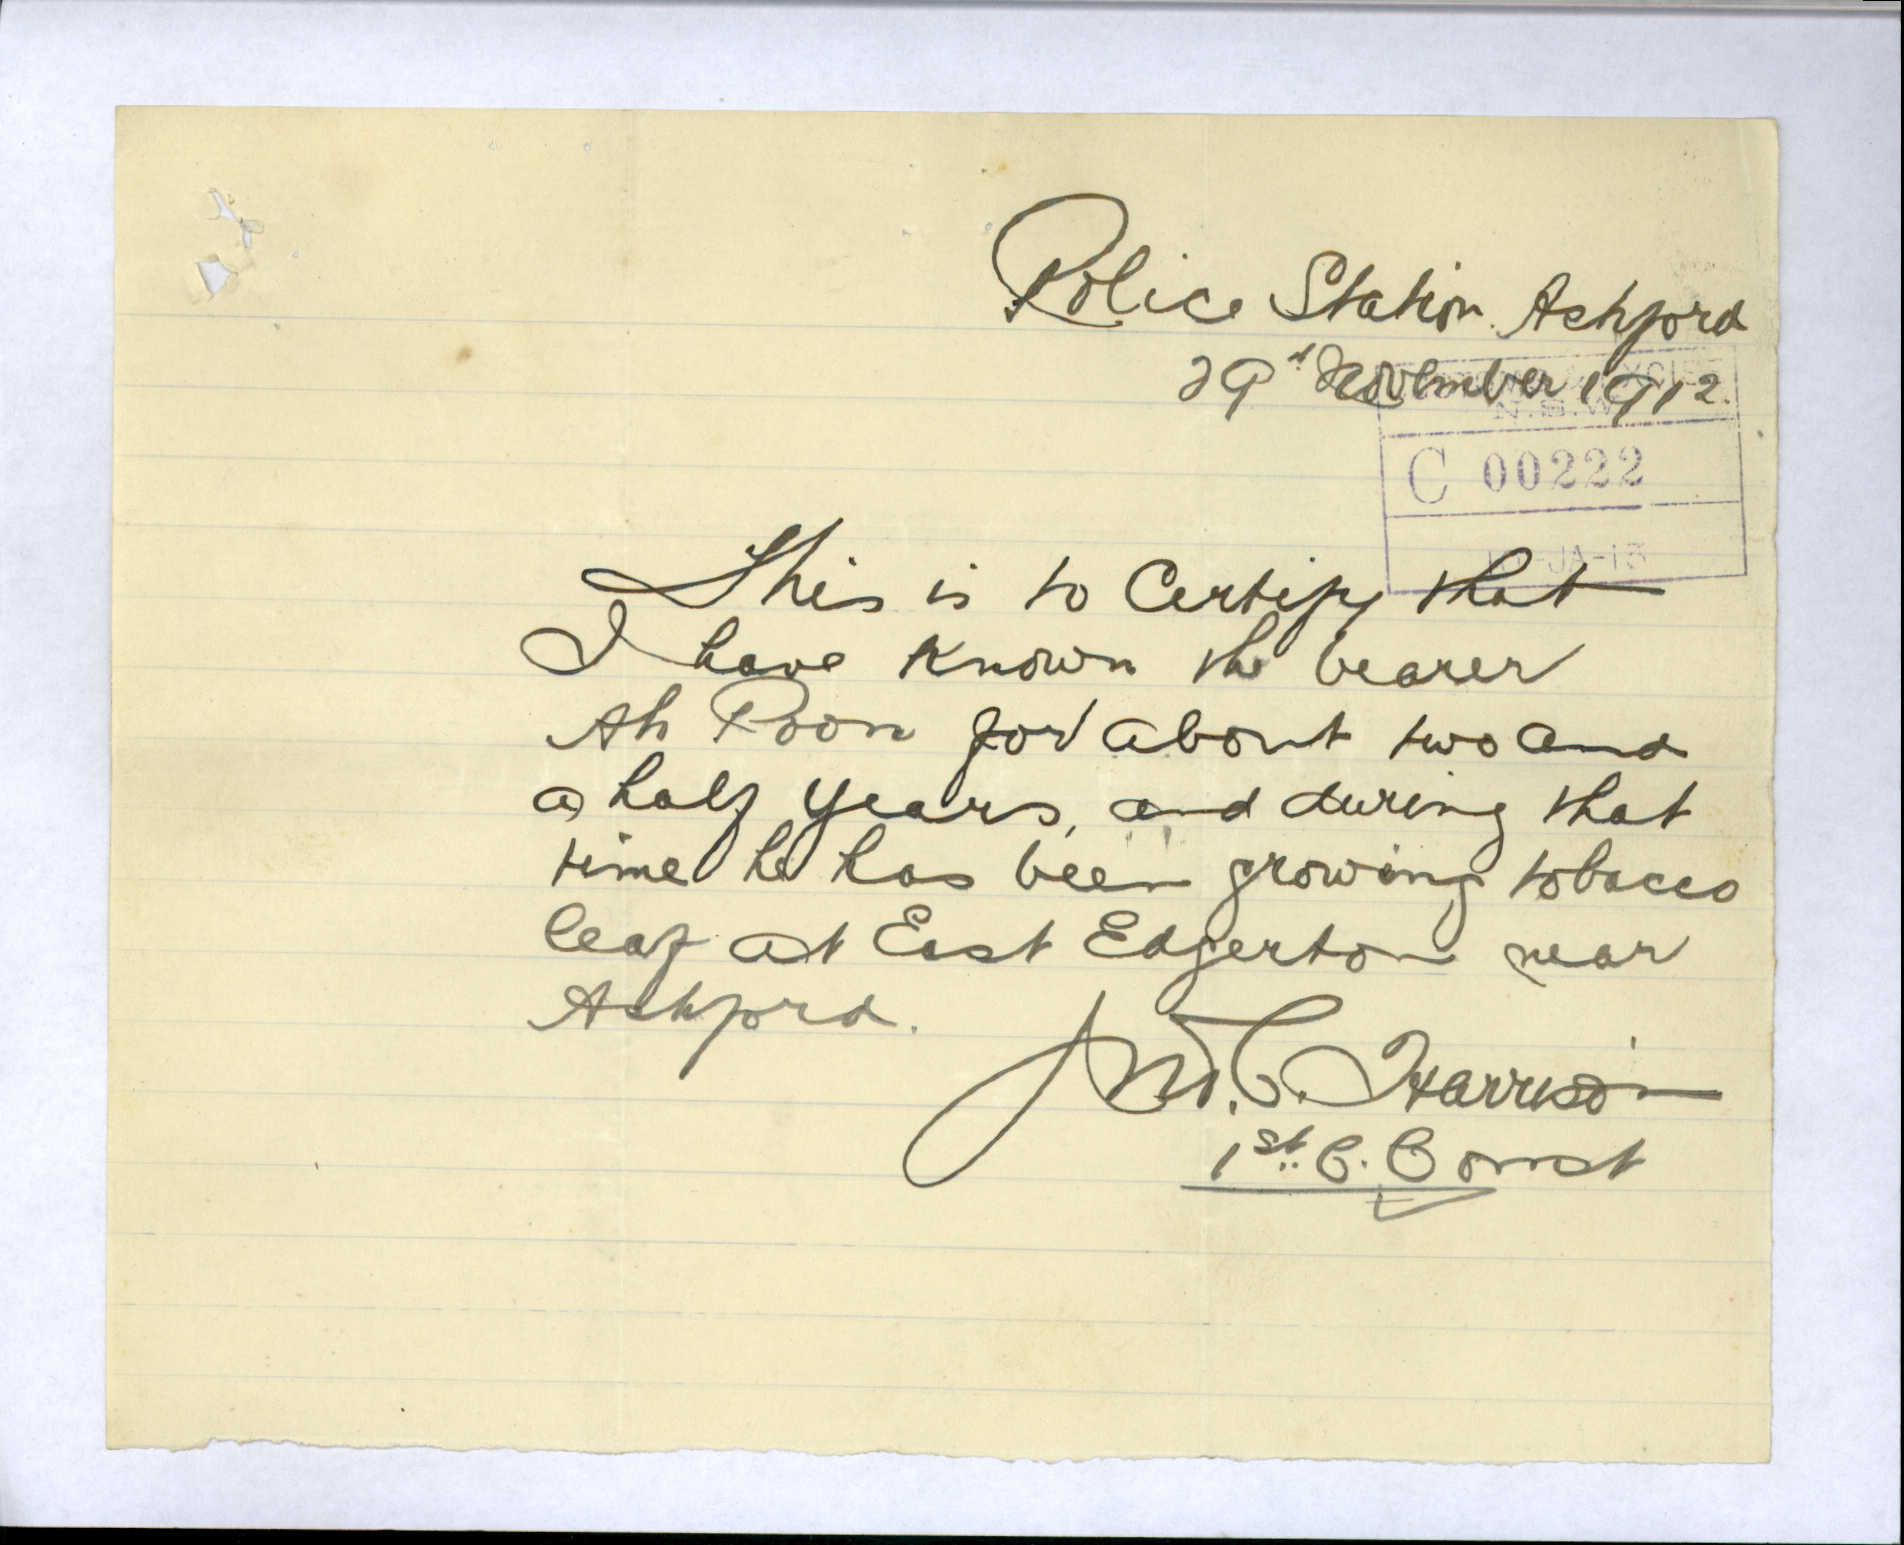 Police Station Ashford
29th November 1912.
N.S.W.
C 00222
-JA-13
This is to Certify that
I have known the bearer
Ah Poon for about two and
a half years, and during that
time he has been growing tobacco
leaf at East Edgerton near
Ashford.
Harrison
1st. C. Const